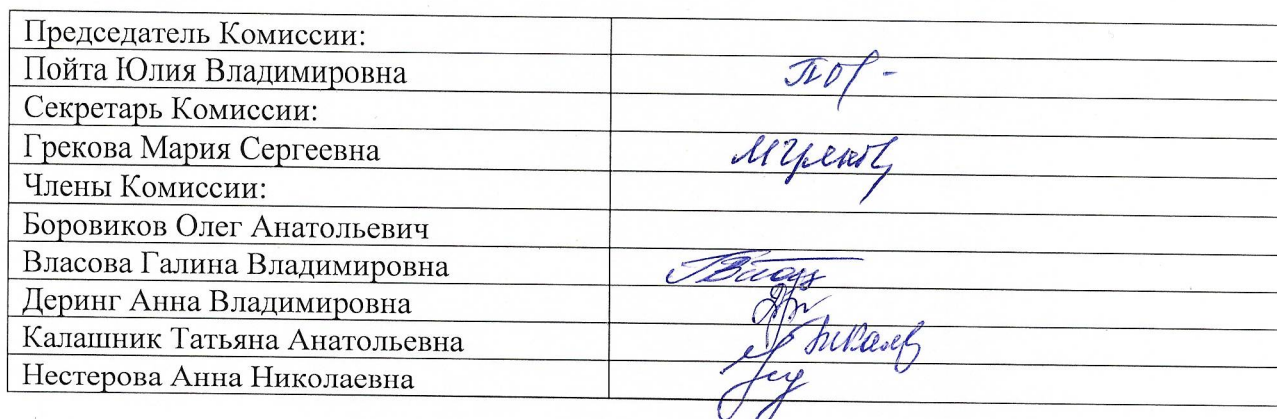 Председатель Комиссии:
Пойта Юлия Владимировна
Секретарь Комиссии:
Грекова Мария Сергеевна
Члены Комиссии:
Боровиков Олег Анатольевич
Власова Галина Владимировна
Деринг Анна Владимировна
Калашник Татьяна Анатольевна
Нестерова Анна Николаевна